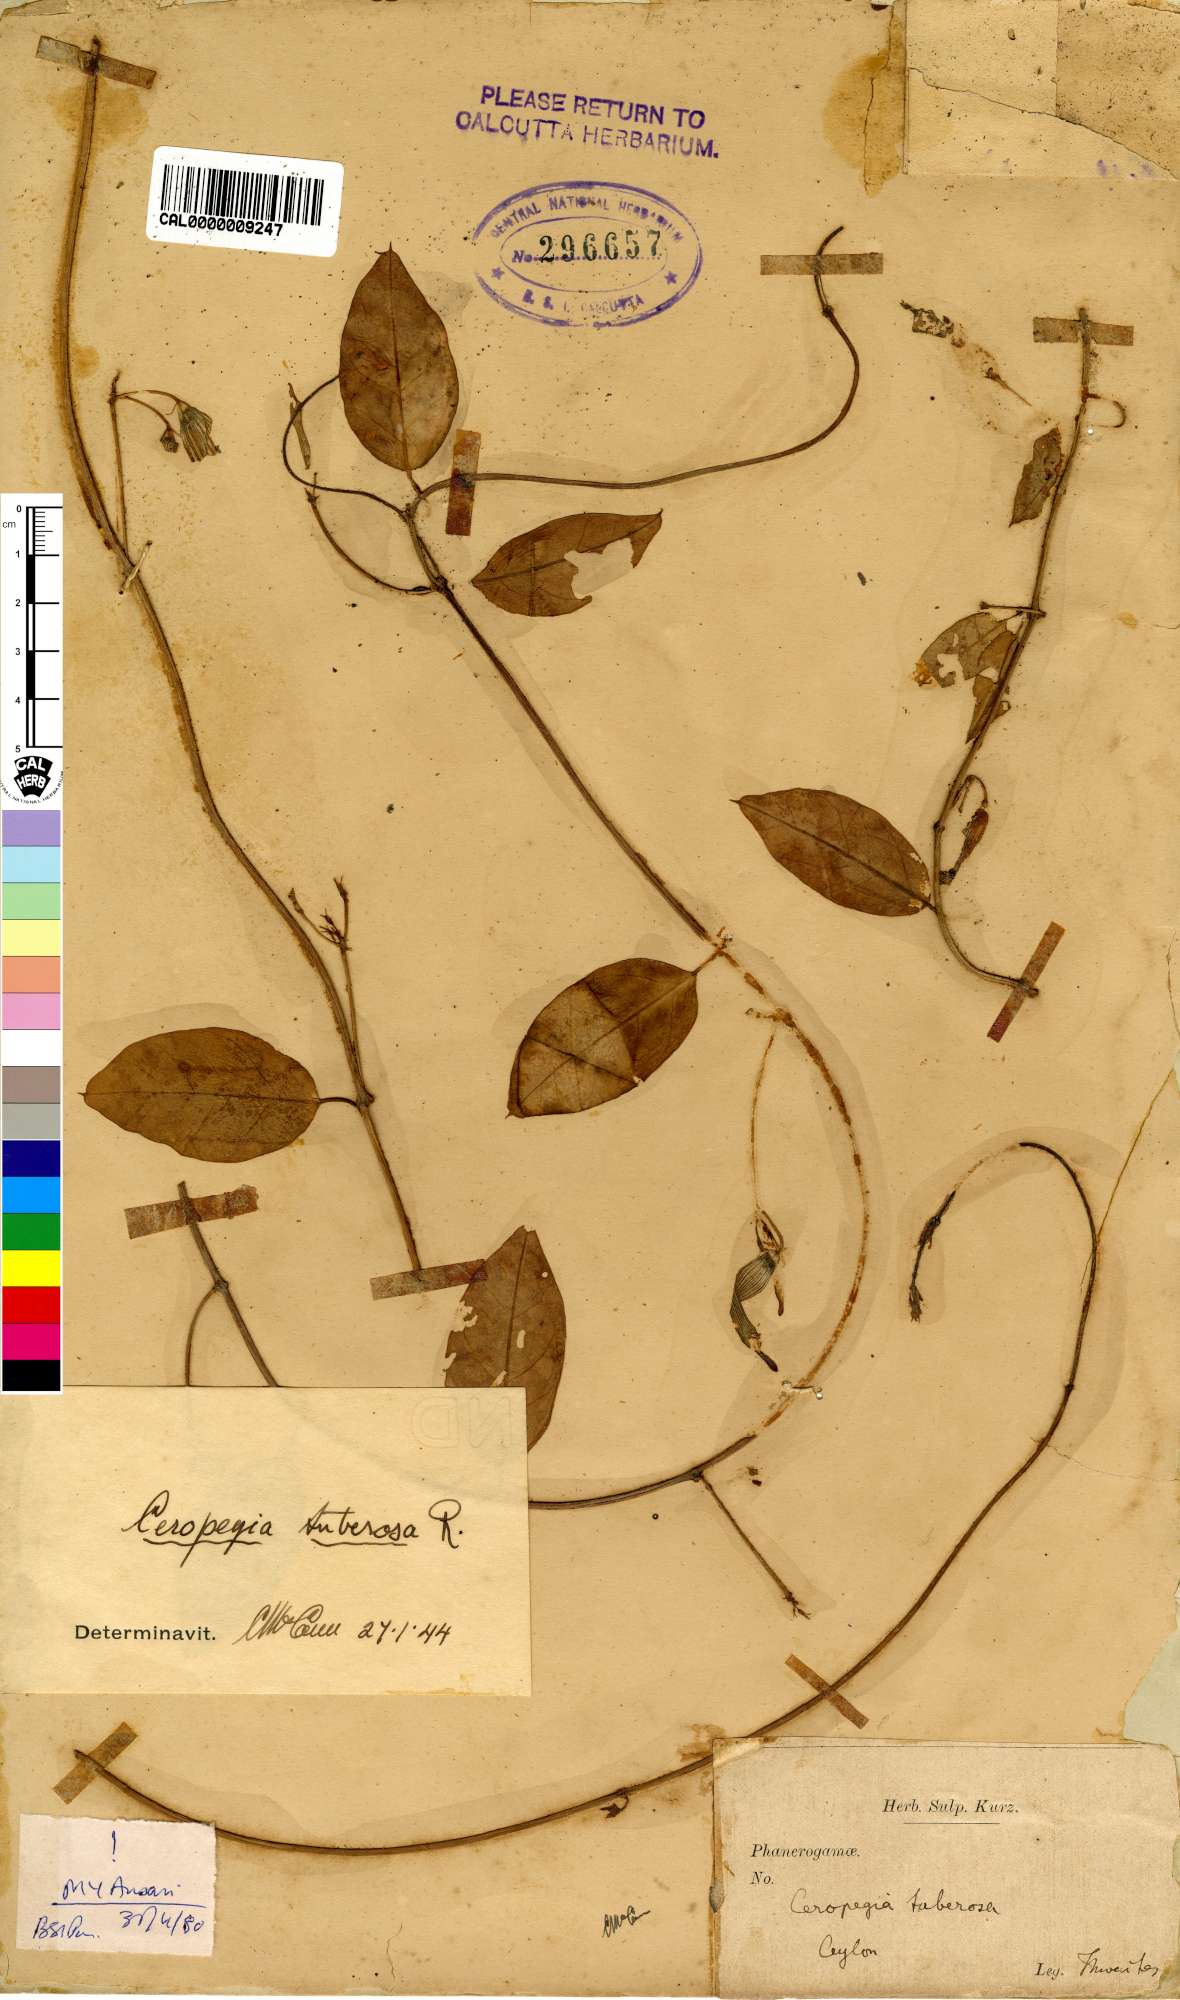 PLEASE RETURN TO
CALCUTTA HERBARIUM.
CAL0000009247
CENTRAL NATIONAL HERBARIUM
No. 296657
B. S. I. CALCUTTA
0
cm
1
2
3
4
5
CAL
HERB
CENTRAL NATIONAL HERBARIUM
Ceropegia tuberosa R.
Determinavit. CMcCann 27.1.44
!
MY Ansari
Herb. Sulp. Kurz.
Phanerogamæ.
No.
Ceropegia tuberosa
Ceylon
Leg. Thwaites
CMcCann